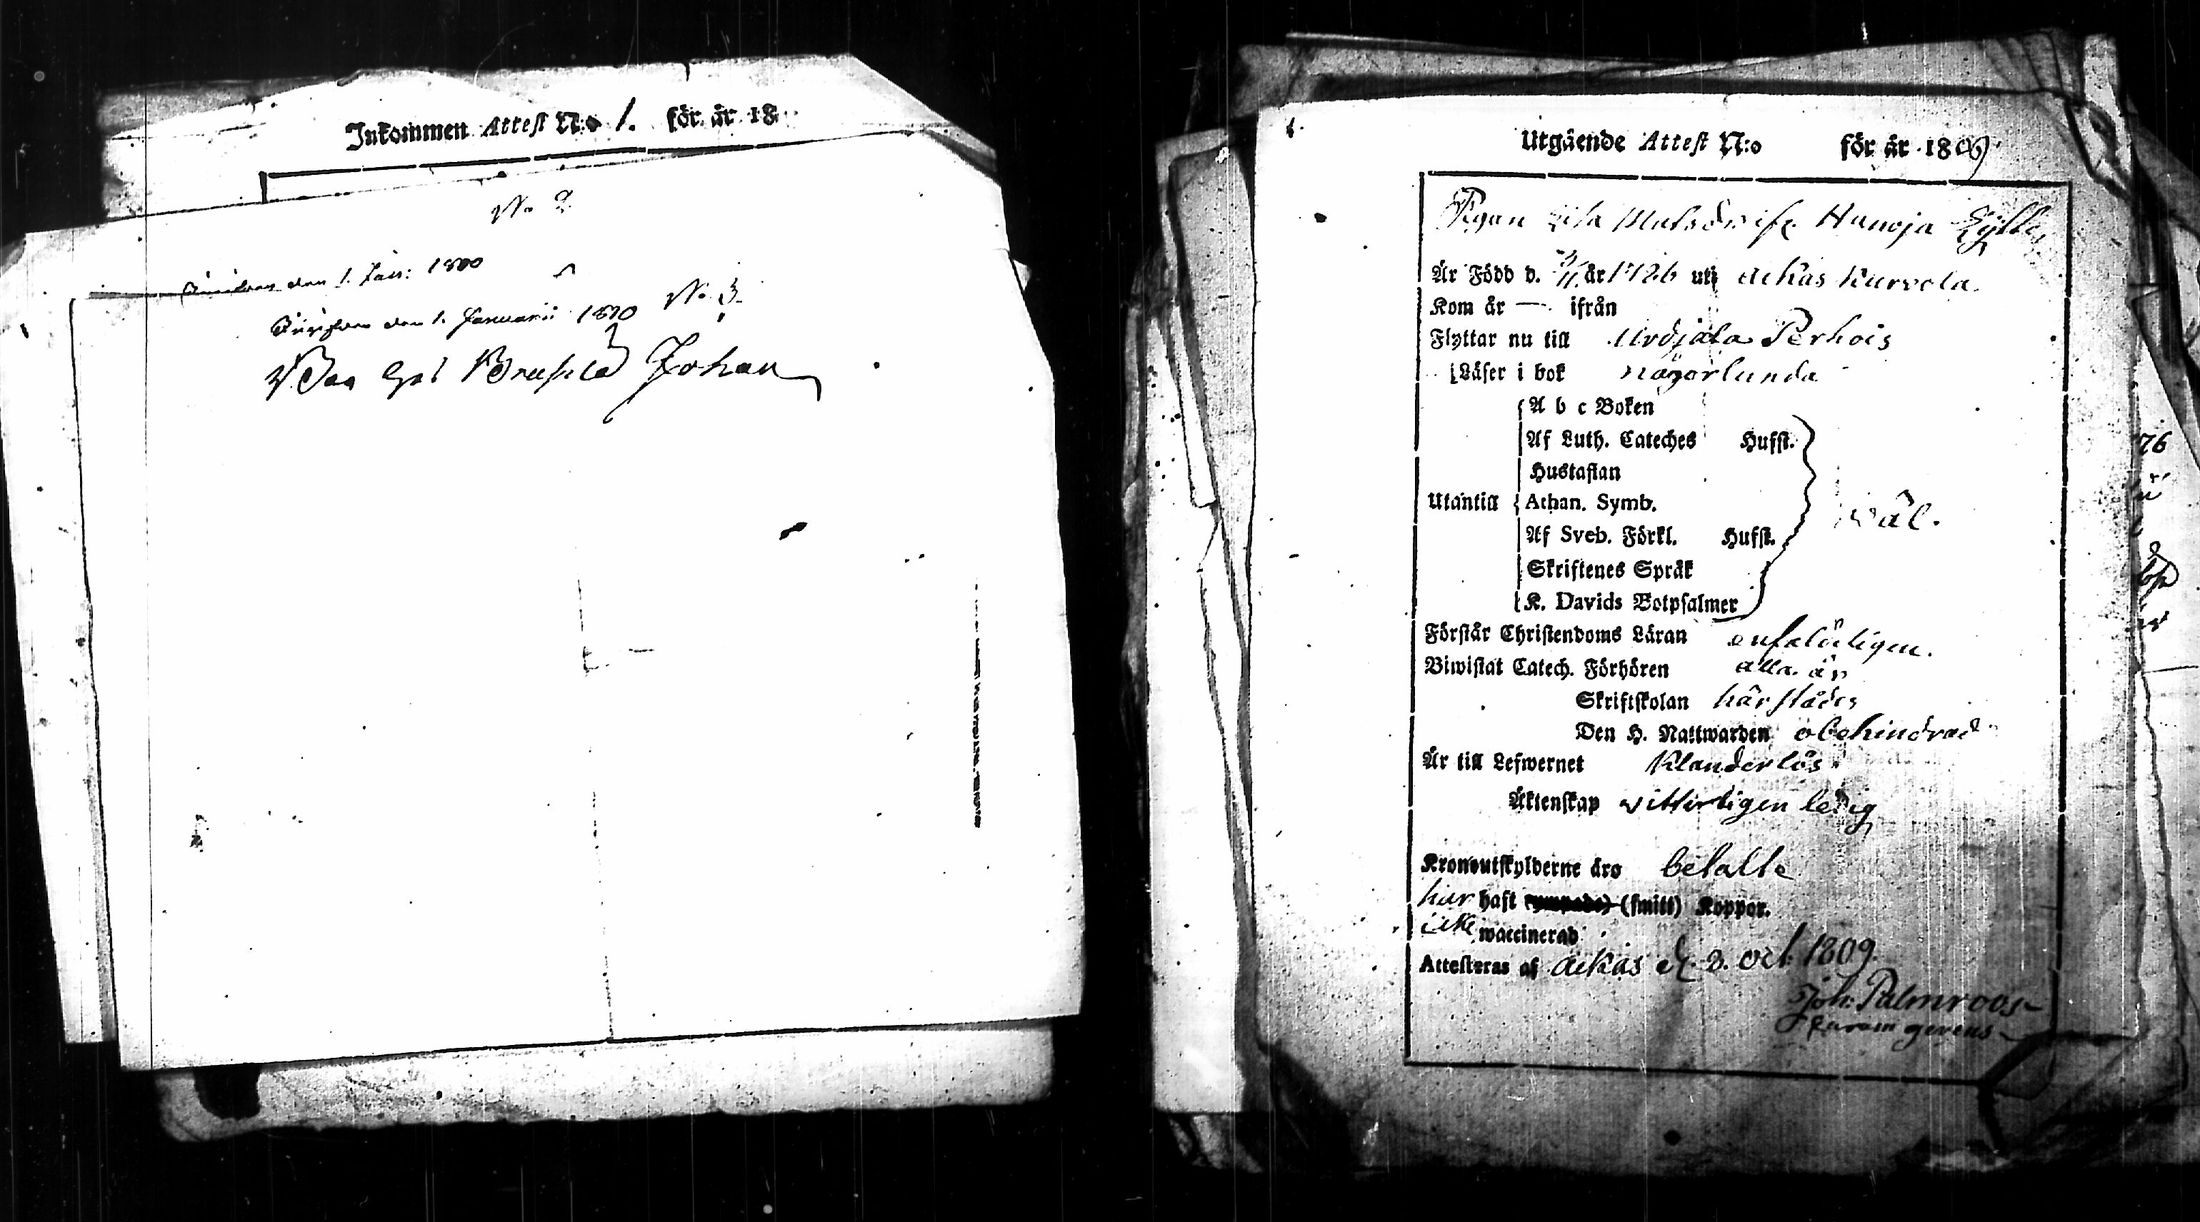 Inkommen Attest N:o 1. för år 18
No 2
den 1. Jan: 1800
den 1. Januarii 1810 No 3
Johan
Utgäende Attest N:o för år 1809
Pigan Lisa Matsdr
Är Född d. år 1786 uti Ackas Kurvola
Kom år — ifrån
Flyttar nu till Urdjala Perhois
Läser i bok någorlunda
A b c Boken
Af Luth. Cateches Hufst.
Hustaflan
Utantill Athan. Symb. väl.
Af Sveb. Förkl. Hufst.
Skriftenes Språk
K. Davids Botpsalmer
Förstår Christendoms Läran enfaldeligen.
Biwistat Catech. Förhören alla år
Skriftskolan härstädes
Den H. Nattwarden obehindrad
Är till Lefwernet Klanderlös
Äktenskap vitterligen ledig
Kronoutskylderne äro betalte
har haft (smitt) Koppor.
icke waccinerad
Attesteras af Ackas d. 3. Oct. 1809.
Joh: Palmroos
curam gerens
76